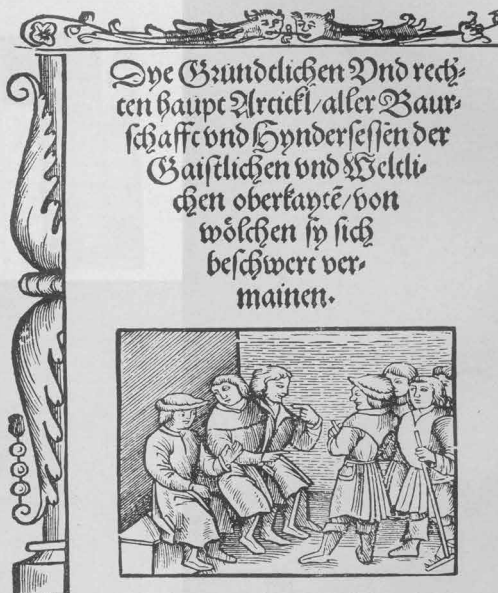 Dye Grundtlichen Vnd rech⸗
ten haupt Artickl/aller Baur⸗
schafft vnd Hyndersessen der
Gaistlichen vnd Weltli⸗
chen oberkaytē/von
wölchen sy sich
beschwert ver⸗
mainen.